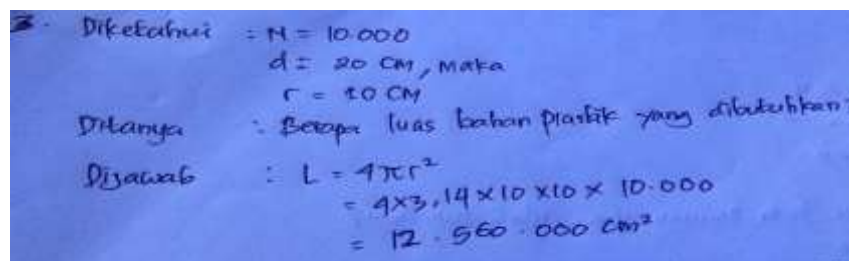 3. Diketahui : N = 10.000
d = 20 cm, maka
r = 10 cm
Ditanya : Berapa luas bahan plastik yang dibutuhkan?
Dijawab : L = 4πr²
= 4x3,14 x 10 x10 x 10.000
= 12.560.000 cm²